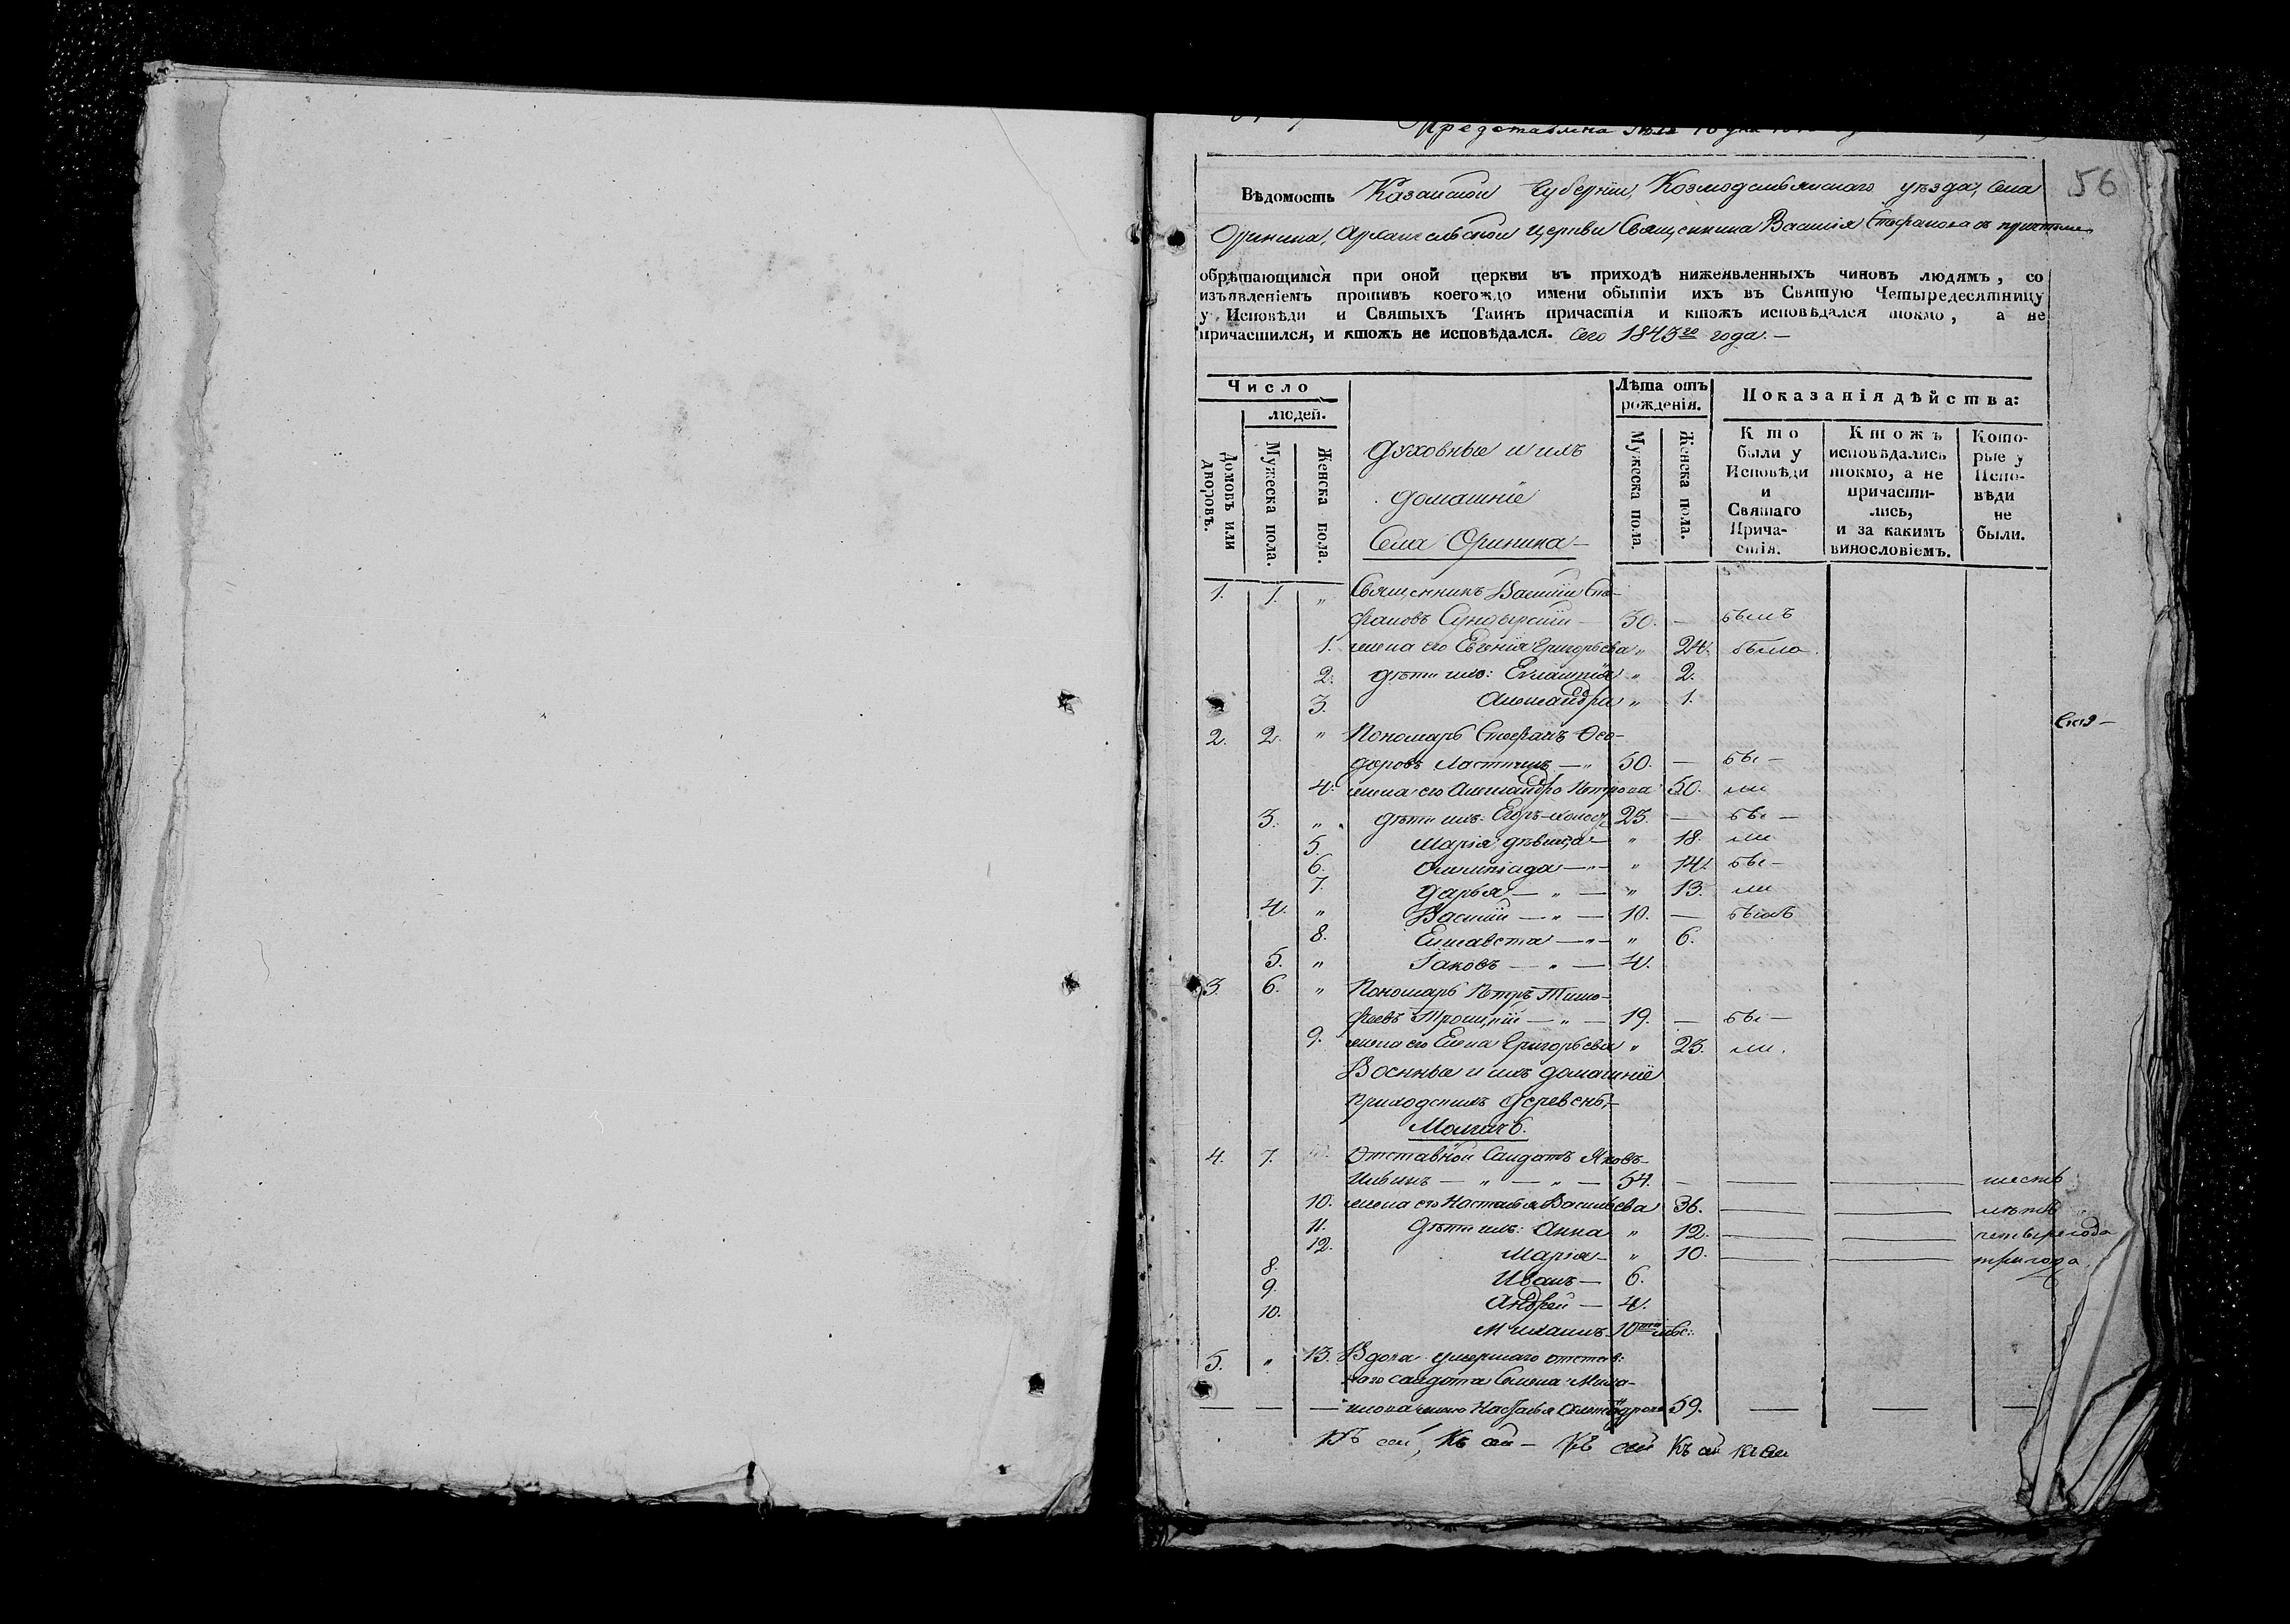 Представлена
56
Вѣдомость Казанской Губерніи, Козмодемьянскаго уѣзда, села
Оринина, Архангельской церкви Священника Василія Стефанова съ причтомъ
обрѣтающимся при оной церкви въ приходѣ нижеявленныхъ чиновъ людямъ, со
изъявленіемъ противъ коегождо имени бытіи ихъ въ Святую Четыредесятницу
у Исповѣди и Святыхъ Таинъ причастія и ктожъ исповѣдался токмо, а не
причастился, и ктожъ не исповѣдался. Сего 1843го года.—
Число
людей.
Домовъ или дворовъ.
Мужеска пола.
Женска пола.
Духовные и ихъ
домашніе
Села Оринина—
Лѣта отъ
рожденія.
Мужеска пола.
Женска пола.
Показанія дѣйства:
Кто
были у
Исповѣди
и
Святаго
Прича-
стія.
Ктожъ
исповѣдались
токмо, а не
причасти-
лись,
и за какимъ
винословіемъ.
Кото-
рые у
Испо-
вѣди
не
были.
1. 1. „ Священникъ Василій Сте-
фановъ Сундырскій — 30. — былъ
1. жена его Евгенія Григорьева „ 24. была.
2. дѣти ихъ: Евлампія „ 2.
3. Александра „ 1.
2. 2. „ Пономарь Стефанъ Ѳео-
доровъ — „ 50. — бы —
4. жена его Александра Петрова 50. ли
3. „ дѣти ихъ: Егоръ 23. — бы —
5. Марія, дѣвица — „ 18. ли
6. Олимпіада — „ — „ 14. бы —
7. Дарья — „ — „ 13. ли
4. „ Василій — „ — 10. — былъ
8. Елисавета — „ — „ 6.
5. „ Іаковъ — „ — 4.
3. 6. „ Пономарь Петръ Тимо-
феевъ Троицкій — „ — 19. — бы —
9. жена его Елена Григорьева „ 23. ли.
Военные и ихъ домашніе
приходскихъ деревень:
4. 7. Отставной Салдатъ Яковъ
Ильинъ — „ — „ — 54. — шесть
10. жена его Настасья Васильева 36. лѣтъ
11. дѣти ихъ: Анна „ 12. четыре года
12. Марія — „ 10. три года
8. Иванъ — 6.
9. Андрей — 4.
10. Михаилъ 10ти мѣс:
5. „ 13. Вдова умершаго отстав-
наго салдата Семена
Настасья 59.
Къ сей, Къ сей — Къ сей Къ сей